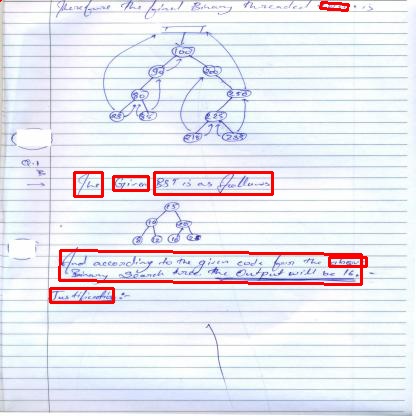 Therefore the final Binary threaded is
100
90 200
80 250
225
Q.1
B
The Given BST is as follows
15
10 20
8 12 16 25
And according to the given code from the above
Binary Search tree the Output will be 16.
Justification :-